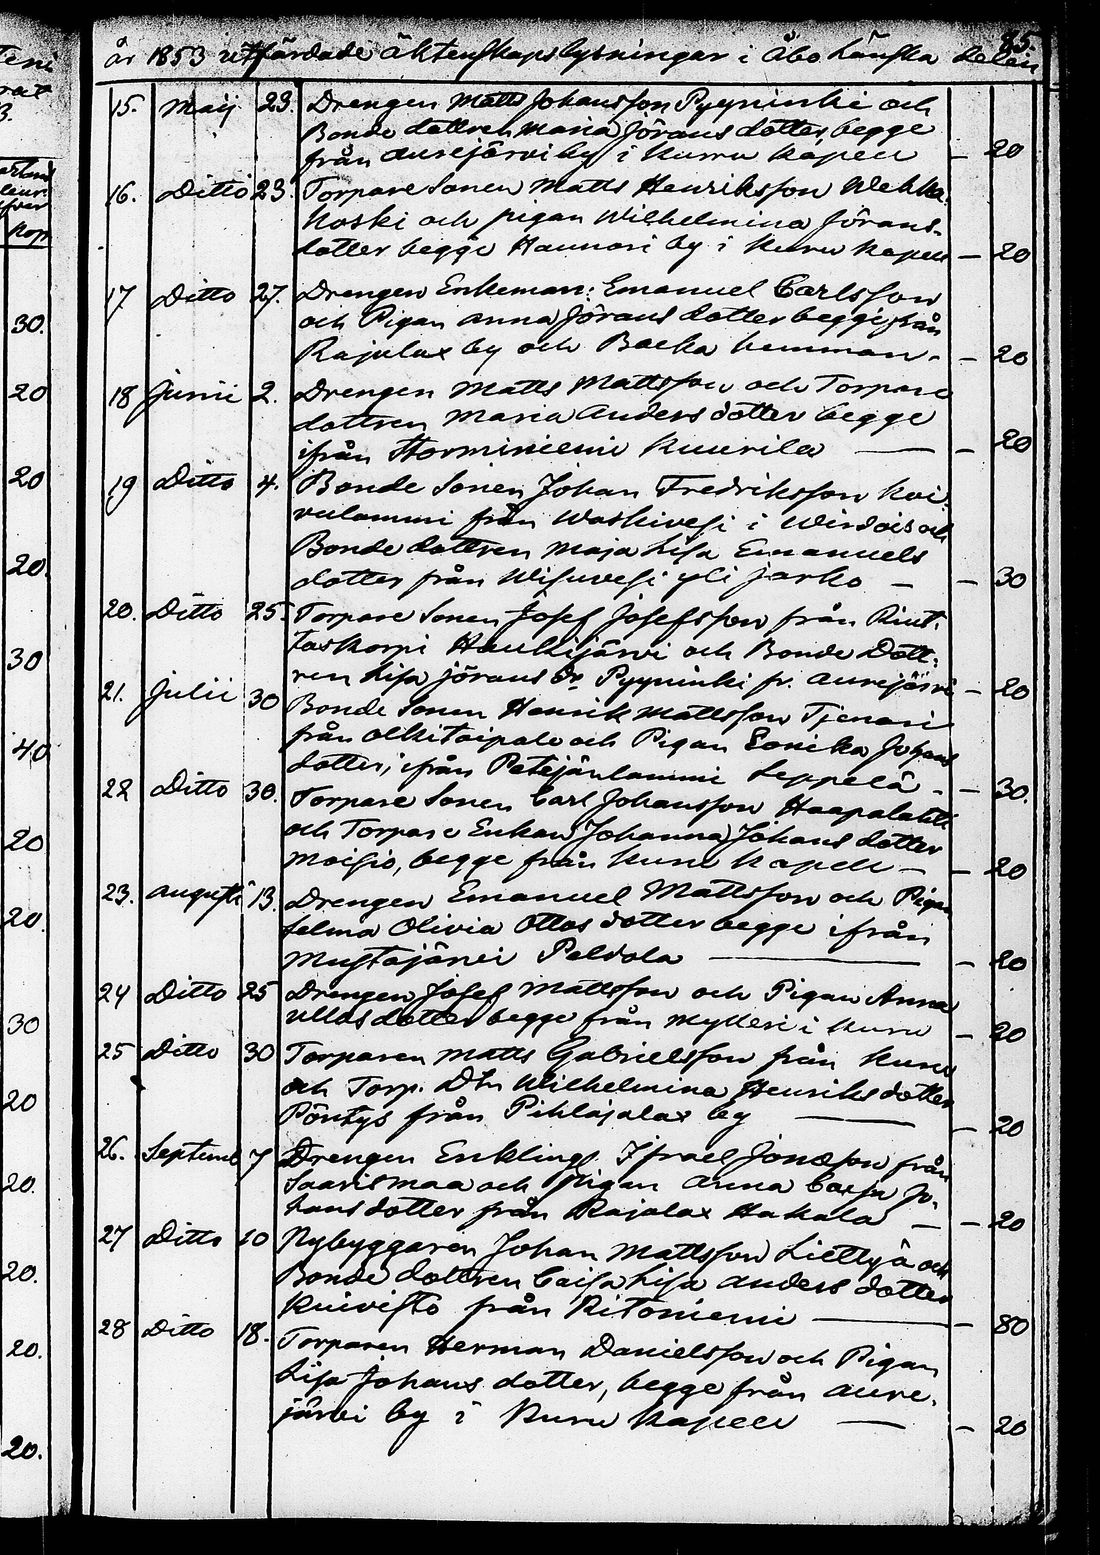 85.
år 1853 utfärdade äktenskaps lysningar i Åbo Länska delen
15. Maij 23. Drengen Matts Johansson Pyyninki och
Bonde dottren Maria Jörans dotter, begge
från Aurejärvi by i Kuru Kapell — 20
16. Ditto 23. Torpare Sonen Matts Henriksson Wehka-
koski och pigan Wilhelmina Jörans-
dotter begge Haunori by i Kuru Kapell — 20
17 Ditto 27. Drengen Enkeman: Emanuel Carlsson
och Pigan Anna Jörans dotter begge från
Rajalax by och Backa hemman. — 20
18 Junii 2. Drengen Matts Mattsson och Torpare
dottren Maria Anders dotter begge
ifrån Horminiemi Kuurila — — 20
19 Ditto 4. Bonde Sonen Johan Fredriksson Koi-
vulammi från Waskivesi i Wirdois och
Bonde dottren Maja Lisa Emanuels
dotter från Wisuvesi yli Jarko — — 30
20. Ditto 25. Torpare Sonen Josef Josefsson från Riut-
taskorpi Haukijärvi och Bonde Dott-
ren Lisa Jörans Dr Pyyninki fr. Aurejärvi — 20
21. Julii 30 Bonde Sonen Henrik Mattsson Tjenari
från Olkitaipale och Pigan Eerika Johans
dotter, ifrån Petäjärlammi Seppelä — 30.
22 Ditto 30. Torpare Sonen Carl Johansson Haapalahti
och Torpare Enkan Johanna Johans dotter
Moisio, begge från Kuru Kapell — — 20
23. Augusti 13. Drengen Emanuel Mattsson och Pigan
Selma Olivia Ottos dotter begge ifrån
Mustajärvi Peldola — — 20
24 Ditto 25 Drengen Josef Mattsson och Pigan Anna
Ullas dotter begge från Mylleri i Kuru — 20
25 Ditto 30 Torparen Matts Gabrielsson från Kuru
och Torp. Dtr Wilhelmina Henriks dotter
Pöntys från Pihlajalax by — — 20
26. Septemb 7 Drengen Enkling Israel Jonasson från
Saarismaa och Pigan Anna Caisa Jo-
hans dotter från Rajalax Hakala — — 20
27 Ditto 10 Nybyggaren Johan Mattsson Liettyä och
Bonde dottren Caisa Lisa Anders dotter
Kuivisto från Ritoniemi — — 80
28 Ditto 18. Torparen Herman Danielsson och Pigan
Lisa Johans dotter, begge från Aure-
järvi by i Kuru Kapell — — 20
30.
20
20
20.
30
40
20
20.
30
20
20.
20.
20.
20.